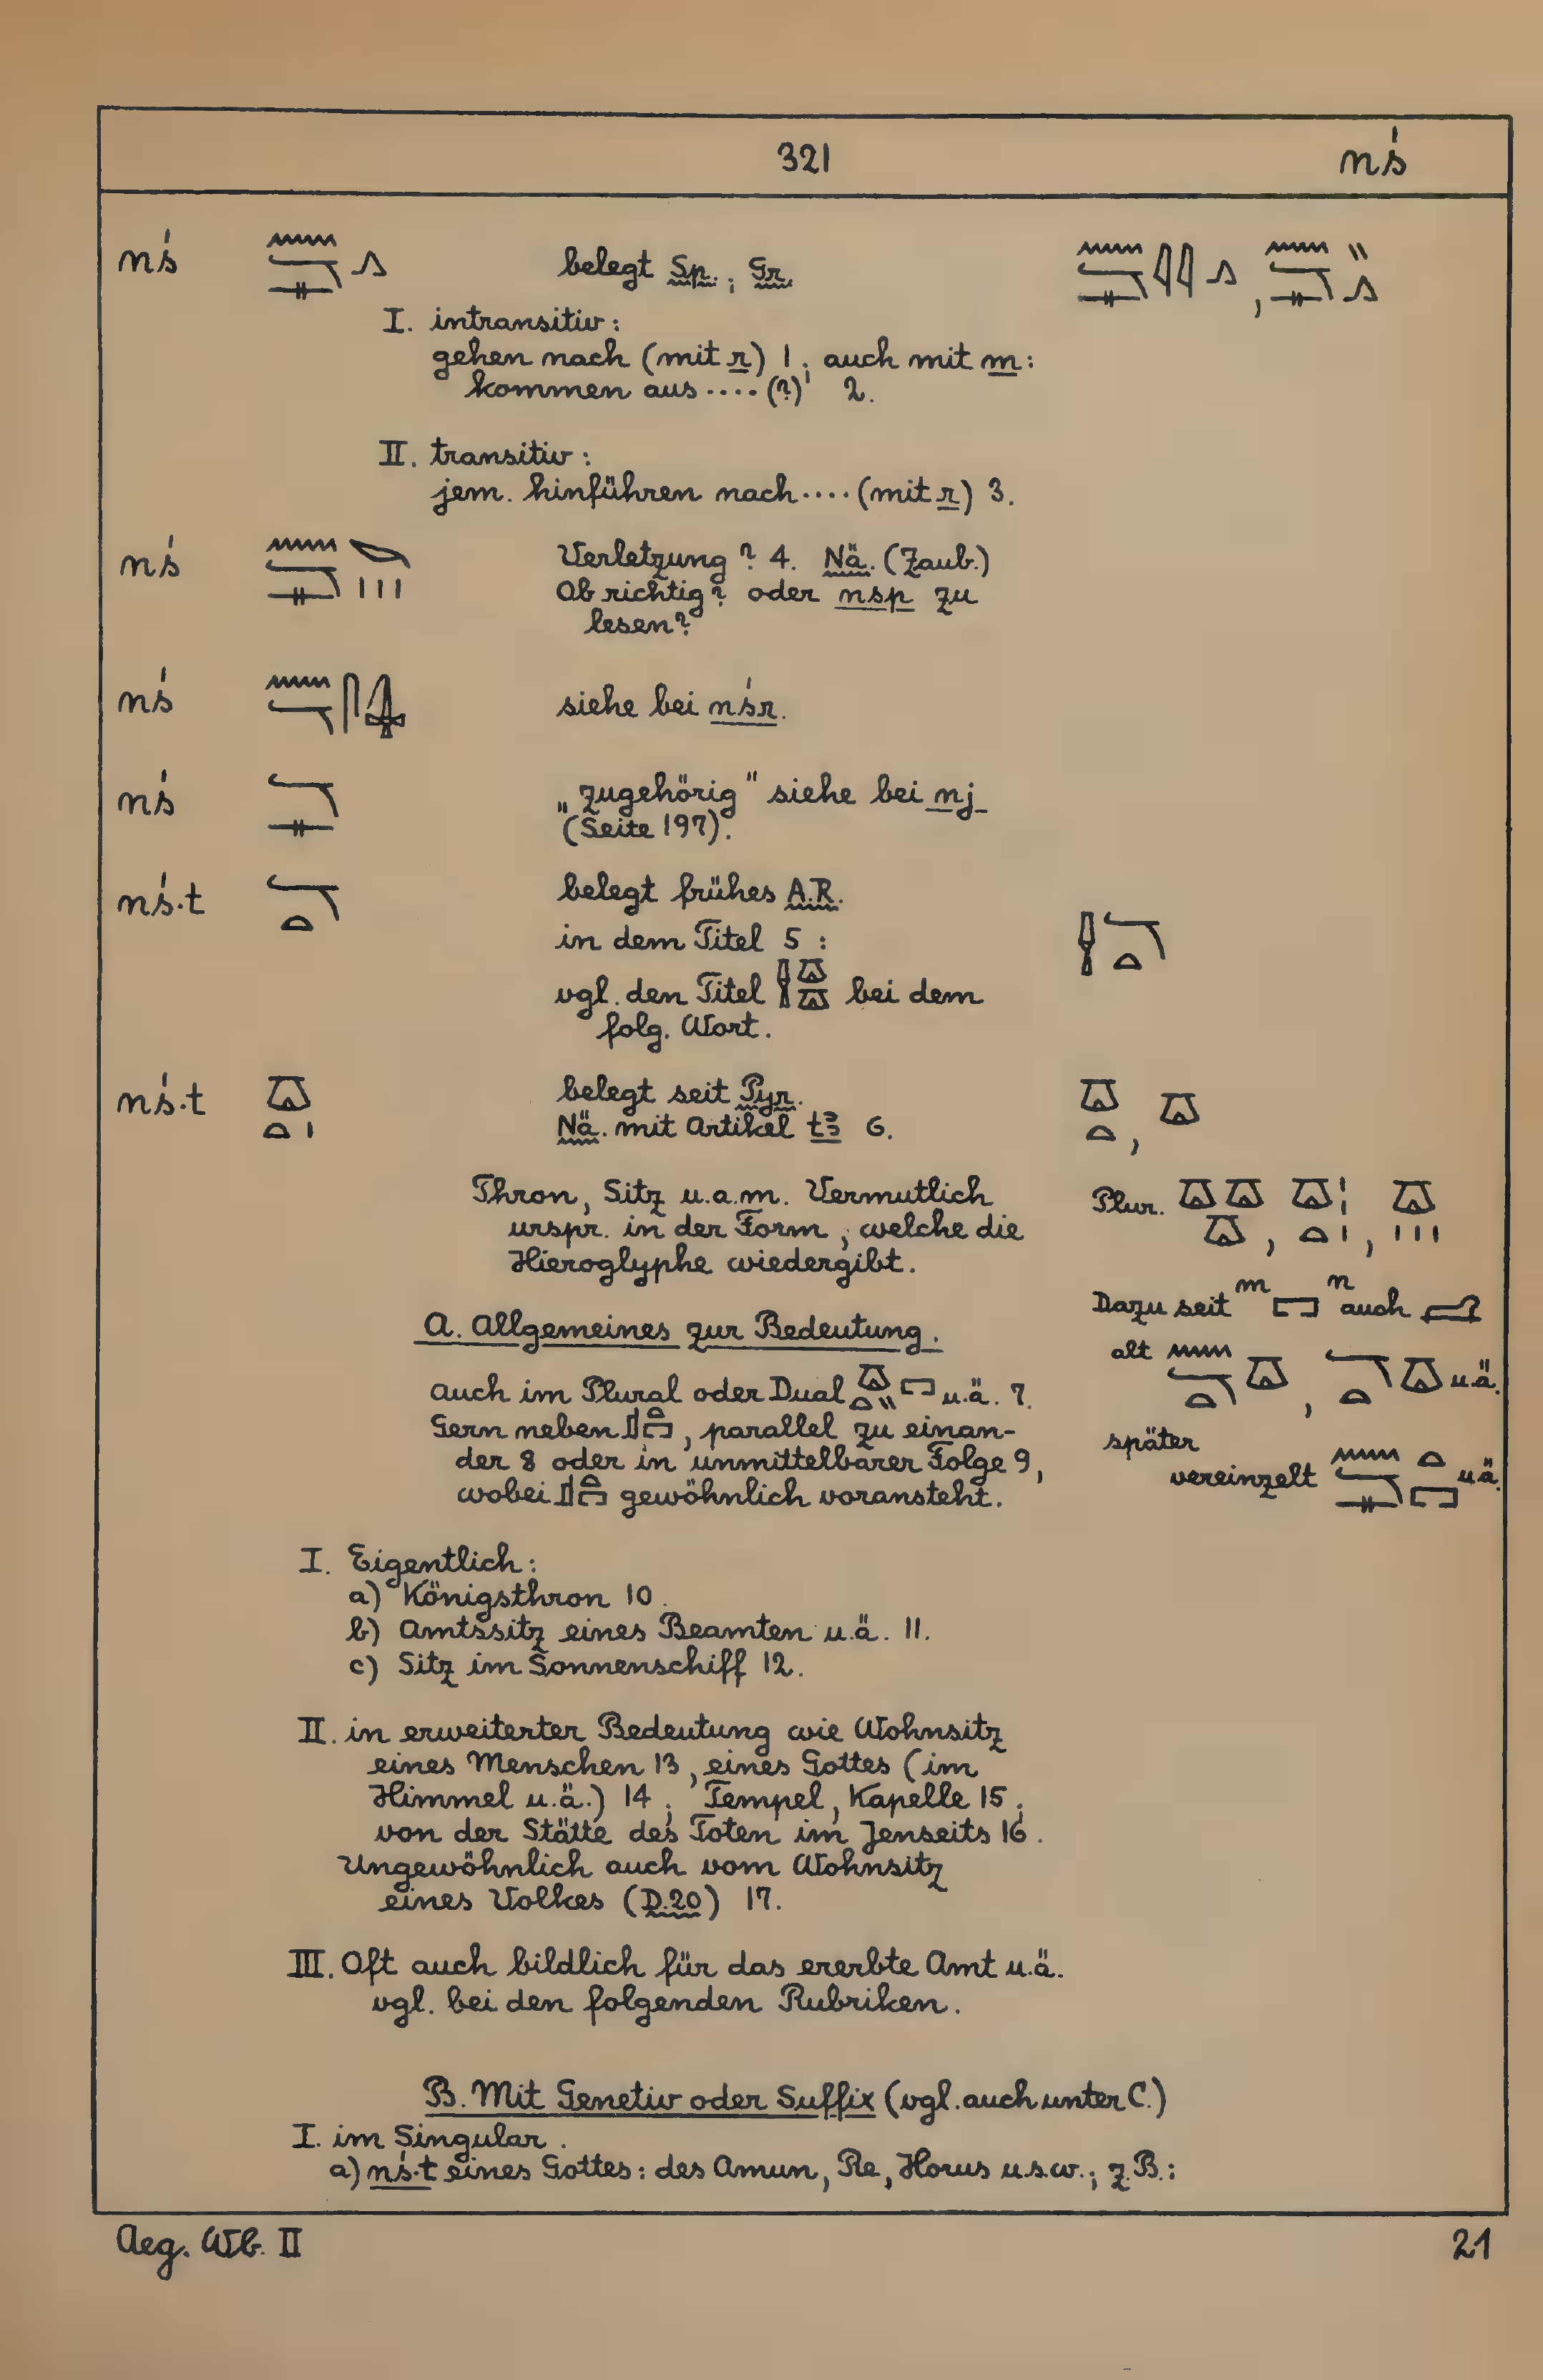 321 nś
nś belegt Sp.; Gr.
I. intransitiv:
gehen nach (mit r) 1; auch mit m:
kommen aus .... (?) 2.
II. transitiv:
jem. hinführen nach .... (mit r) 3.
nś Verletzung? 4. Nä. (Zaub.)
Ob richtig? oder nsp zu
lesen?
nś siehe bei nśr.
nś „zugehörig" siehe bei nj
(Seite 197).
nś.t belegt frühes A.R.
in dem Titel 5:
vgl. den Titel bei dem
folg. Wort.
nś.t belegt seit Pyr.
Nä. mit Artikel tꜣ 6.
Thron, Sitz u.a.m. Vermutlich
urspr. in der Form, welche die
Hieroglyphe wiedergibt.
Plur.
Dazu seit m n auch
alt u.ä.
später
vereinzelt u.ä.
A. Allgemeines zur Bedeutung.
auch im Plural oder Dual u.ä. 7.
Gern neben , parallel zu einan-
der 8 oder in unmittelbarer Folge 9,
wobei gewöhnlich voransteht.
I. Eigentlich:
a) Königsthron 10.
b) Amtssitz eines Beamten u.ä. 11.
c) Sitz im Sonnenschiff 12.
II. in erweiterter Bedeutung wie Wohnsitz
eines Menschen 13, eines Gottes (im
Himmel u.ä.) 14; Tempel, Kapelle 15;
von der Stätte des Toten im Jenseits 16.
Ungewöhnlich auch vom Wohnsitz
eines Volkes (D.20) 17.
III. Oft auch bildlich für das ererbte Amt u.ä.
vgl. bei den folgenden Rubriken.
B. Mit Genetiv oder Suffix (vgl. auch unter C.)
I. im Singular.
a) nś.t eines Gottes: des Amun, Re, Horus u.s.w.; z.B.:
Aeg. Wb. II 21